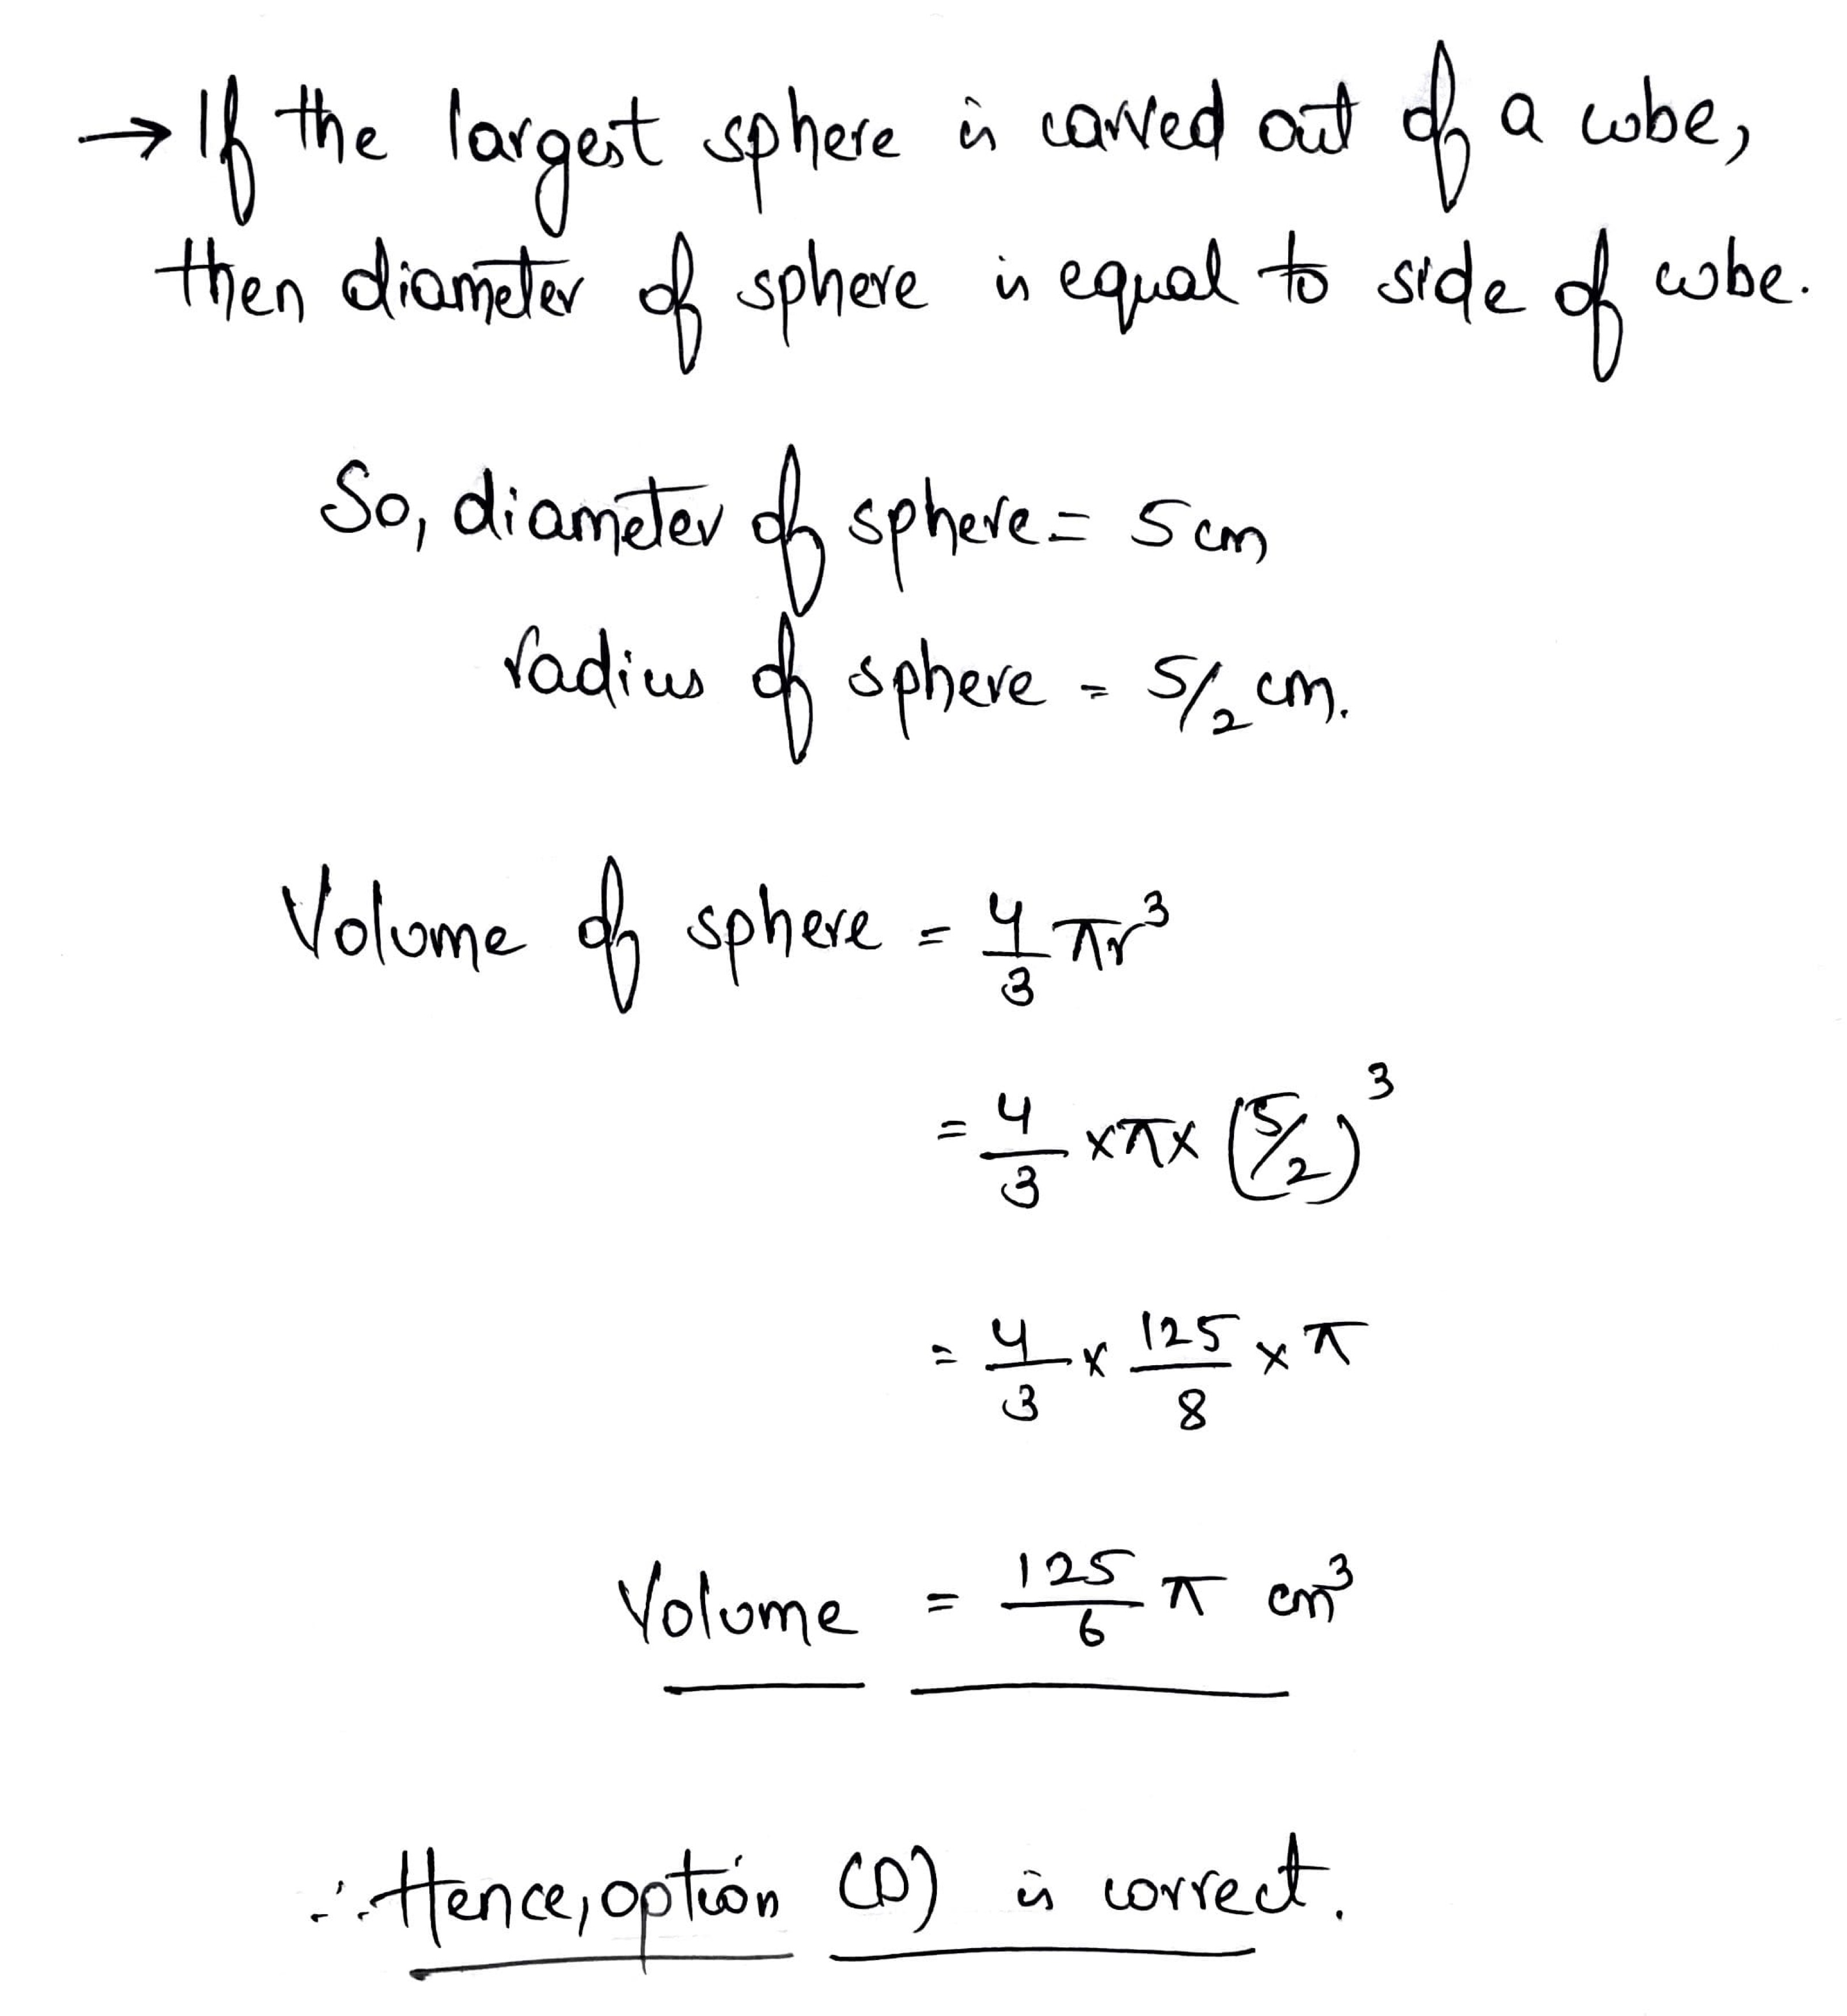 → If the largest sphere is carved out of a cube,
then diameter of sphere is equal to side of cube.
So, diameter of sphere = 5 cm
radius of sphere = 5/2 cm.
Volume of sphere = 4/3 πr³
= 4/3 × π × (5/2)³
= 4/3 × 125/8 × π
Volume = 125/6 π cm³
∴ Hence, option (D) is correct.